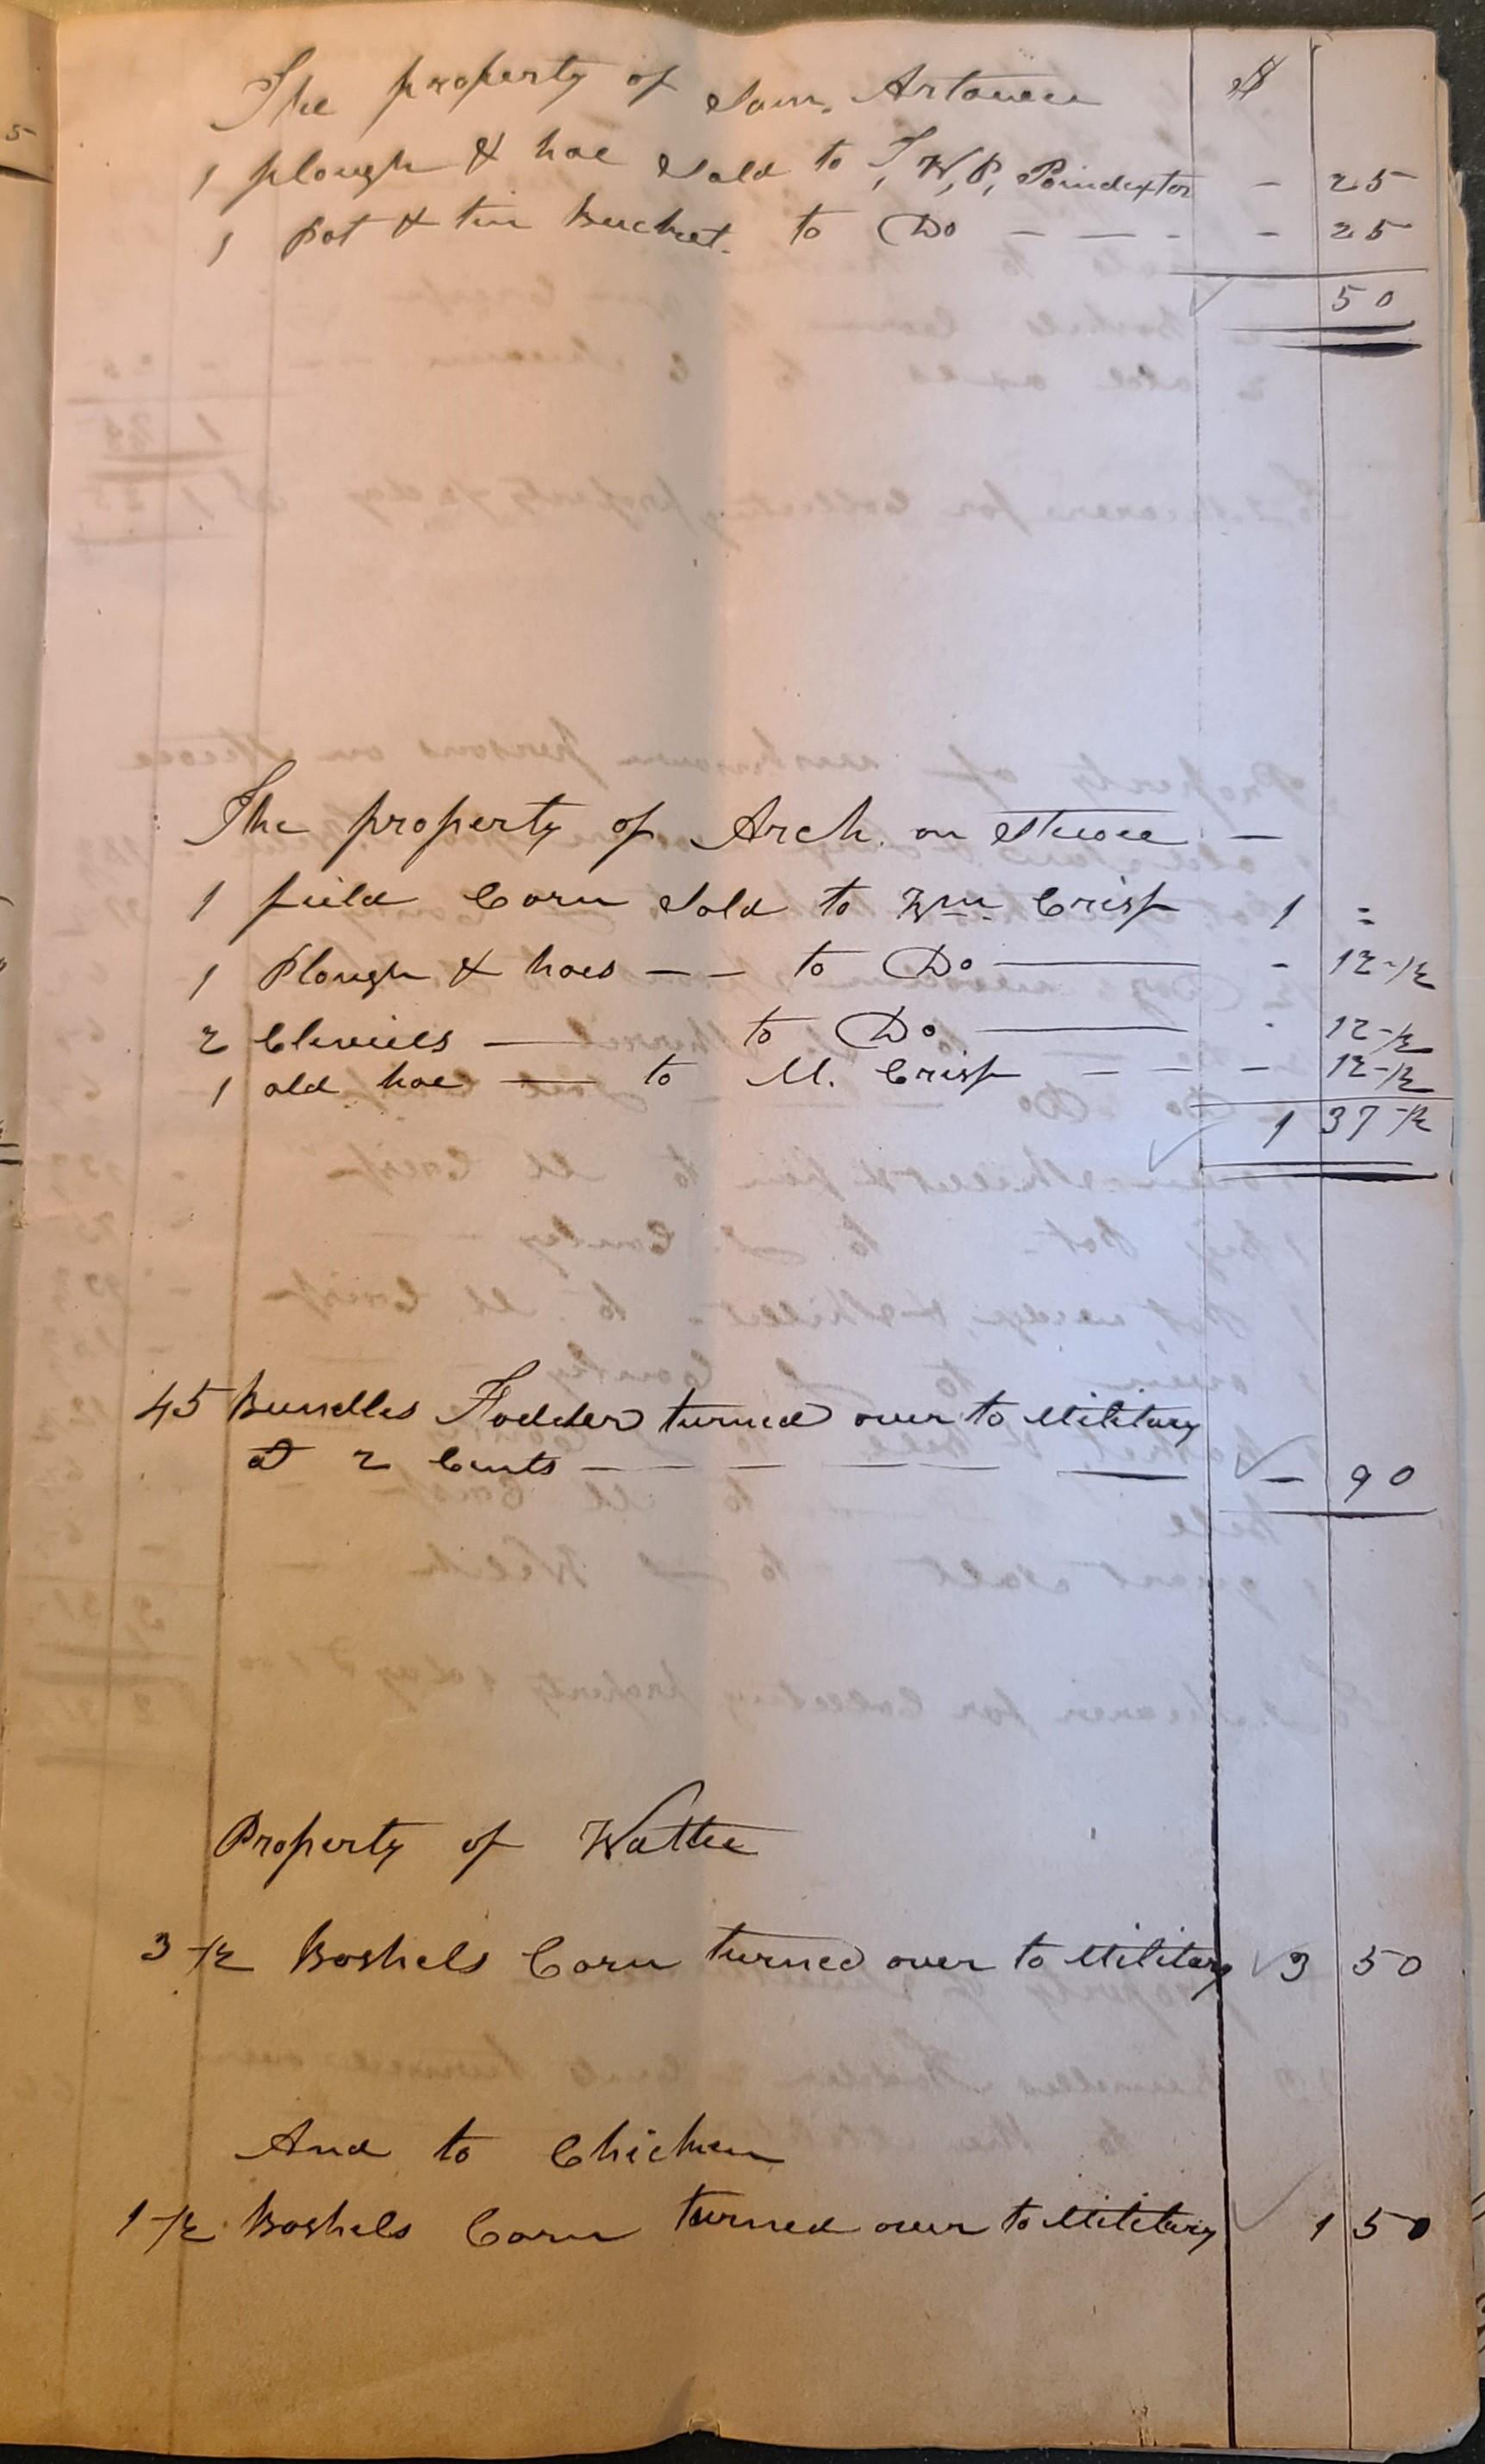 The property of Sam, Artowee $
1 plough & hoe Sold to T, W, P, Poindexter - 25
1 Pot & tin Bucket. to Do - - - - 25
50
The property of Arch. on Stecoee -
1 field Corn Sold to Wm. Crisp 1 =
1 Plough & hoes - - to Do - 12-1/2
2 Clevices - to Do - 12-1/2
1 old hoe - to M. Crisp - - - 12-1/2
1 37-1/2
45 Bundles Fodder turned over to Military
at 2 Cents - - - - - - 90
Property of Wattee
3-1/2 Boshels Corn turned over to Military 3 50
And to Chicken
1-1/2 Boshels Corn turned over to Military 1 50